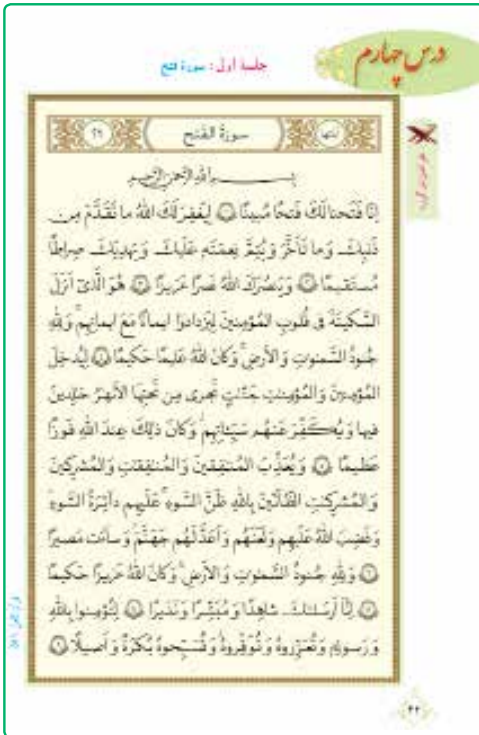 درس چهارم
جلسهٔ اول: سورهٔ فتح
آیاتها سورة الفتح ٢٩
بسم الله الرحمن الرحیم
اِنّا فَتَحنا لَكَ فَتحًا مُبینًا ۝١ لِیَغفِرَ لَكَ اللهُ ما تَقَدَّمَ مِن
ذَنبِكَ وَ ما تَأَخَّرَ وَ یُتِمَّ نِعمَتَهٗ عَلَیكَ وَ یَهدِیَكَ صِراطًا
مُستَقیمًا ۝٢ وَ یَنصُرَكَ اللهُ نَصرًا عَزیزًا ۝٣ هُوَ الَّذی اَنزَلَ
السَّكینَةَ فی قُلوبِ المُؤمِنینَ لِیَزدادوا ایمانًا مَعَ ایمانِهِم وَ لِلّٰهِ
جُنودُ السَّمٰوٰتِ وَ الاَرضِ وَ كانَ اللهُ عَلیمًا حَكیمًا ۝٤ لِیُدخِلَ
المُؤمِنینَ وَ المُؤمِنٰتِ جَنّٰتٍ تَجری مِن تَحتِهَا الاَنهٰرُ خٰلِدینَ
فیها وَ یُكَفِّرَ عَنهُم سَیِّئاتِهِم وَ كانَ ذٰلِكَ عِندَ اللهِ فَوزًا
عَظیمًا ۝٥ وَ یُعَذِّبَ المُنٰفِقینَ وَ المُنٰفِقٰتِ وَ المُشرِكینَ
وَ المُشرِكٰتِ الظّانّینَ بِاللهِ ظَنَّ السَّوءِ عَلَیهِم دائِرَةُ السَّوءِ
وَ غَضِبَ اللهُ عَلَیهِم وَ لَعَنَهُم وَ اَعَدَّ لَهُم جَهَنَّمَ وَ ساءَت مَصیرًا
۝٦ وَ لِلّٰهِ جُنودُ السَّمٰوٰتِ وَ الاَرضِ وَ كانَ اللهُ عَزیزًا حَكیمًا
۝٧ اِنّا اَرسَلنٰكَ شاهِدًا وَ مُبَشِّرًا وَ نَذیرًا ۝٨ لِتُؤمِنوا بِاللهِ
وَ رَسولِهٖ وَ تُعَزِّروهُ وَ تُوَقِّروهُ وَ تُسَبِّحوهُ بُكرَةً وَ اَصیلًا ۝٩